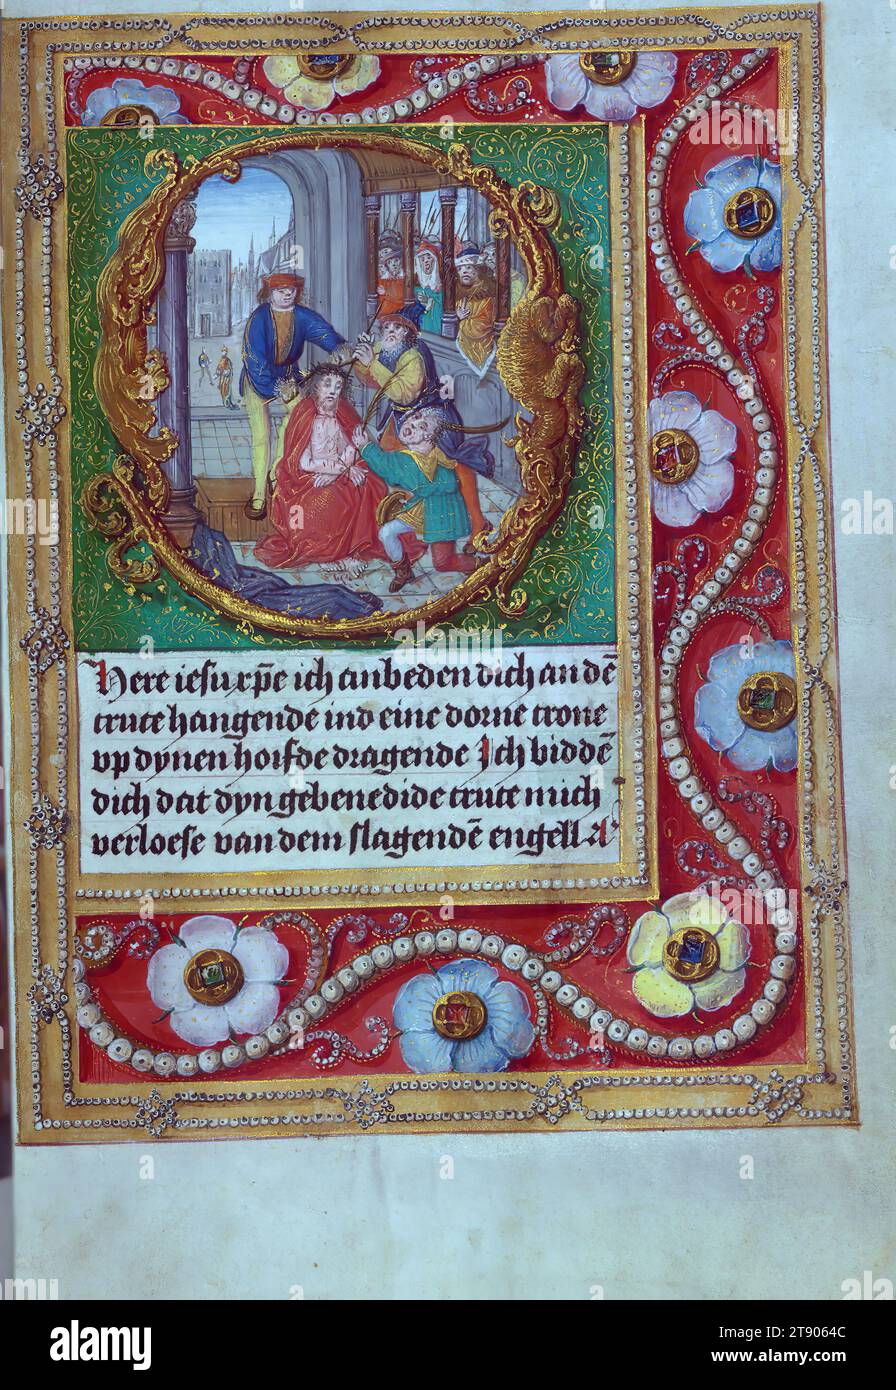 Here iesu xp̄e ich anbeden dich an dē
cruce hangende ind eine dorne crone
vp dynen hoifde dragende Ich biddē
dich dat dyn gebenedide cruce mich
verloese van dem slagendē engell A
alamy
Image ID: 2T9064C
www.alamy.com